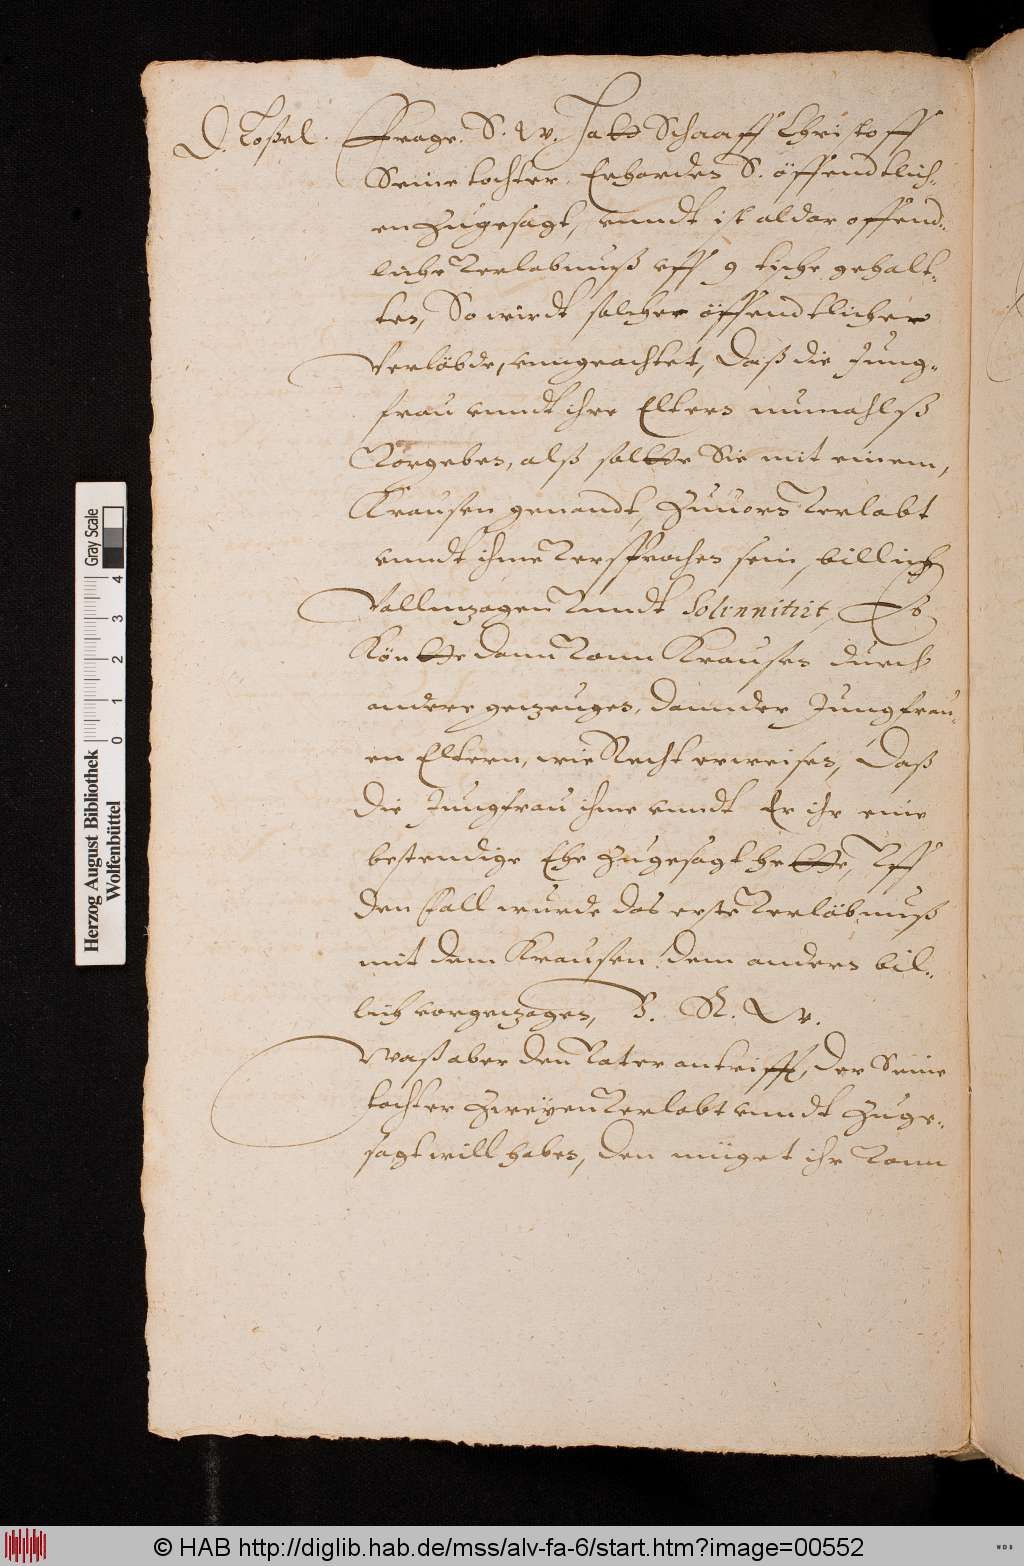 D. Roßel. Frage. S. W. Habe Schaaff Christoff
Seine tochter, Erhardes S. öffendtlich-
en Zugesagt, unndt ist aldar offend-
liche Verlobnuß uff 9 tische gehalt-
ten, So wirdt solcher öffendtlicher
Verlöbde, unngeachtet, Daß die Jung-
frau unndt ihre Eltern numahlß
Vorgeben, alß sollte Sie mit einem,
Krausen genandt, Zuuorn Verlobt
unndt ihme Versprochen sein, billich
Vollnzogen Vnndt Solennitirt, Es
Könte dann Vonn Krausen durch
andere gezeugen, dann der Jungfrau-
en Eltern, wie Recht erweisen, Daß
die Jungfrau ihme unndt Er ihr eine
bestendige Ehe Zugesagt hette, Vff
den Fall wurde das erste Verlöbnuß
mit dem Krausen dem andern bil-
lich vorgezogen, V. R. W.
Waß aber den Vater antrifft, der Seine
tochter Zweyen Verlobt unndt Zuge-
sagt will haben, den müget ihr Vonn
Gray Scale
0 1 2 3 4
Herzog August Bibliothek
Wolfenbüttel
© HAB http://diglib.hab.de/mss/alv-fa-6/start.htm?image=00552
WDB